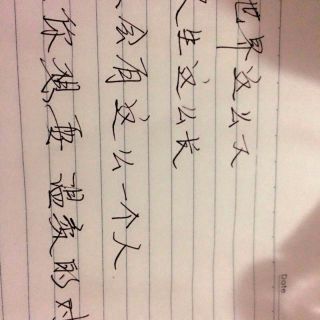 Date
世界这么大
人生这么长
会有这么一个人
你想要温柔的对